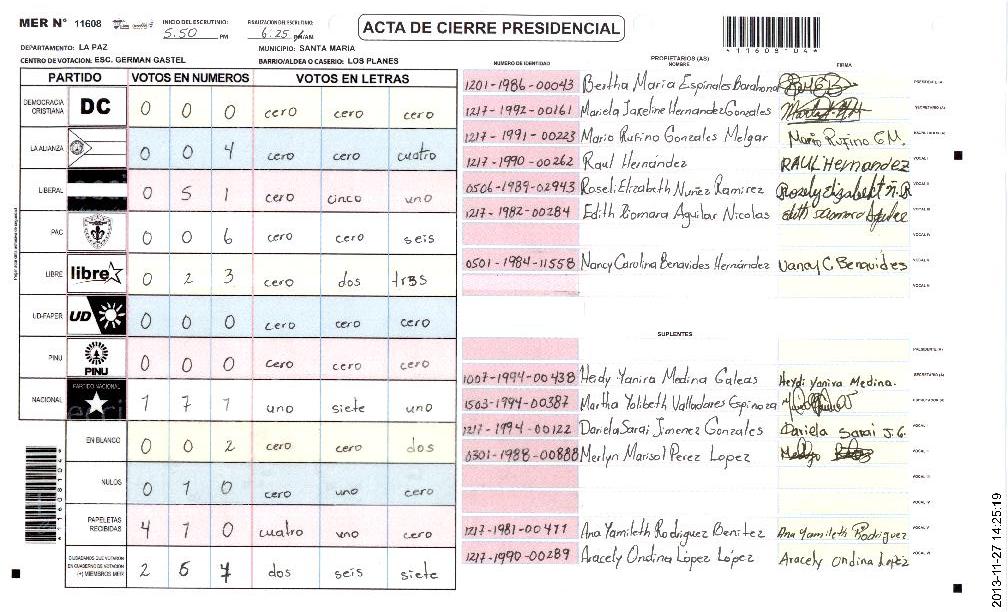 MER N° 11608
INICIO DEL ESCRUTINIO: 5:50 PM
FINALIZACION DEL ESCRUTINIO: 6:25 PM/AM
ACTA DE CIERRE PRESIDENCIAL
4116081041
DEPARTAMENTO: LA PAZ
MUNICIPIO: SANTA MARIA
CENTRO DE VOTACION: ESC. GERMAN GASTEL
BARRIO/ALDEA O CASERIO: LOS PLANES
PARTIDO VOTOS EN NUMEROS VOTOS EN LETRAS
DEMOCRACIA CRISTIANA DC 0 0 0 cero cero cero
LA ALIANZA 0 0 4 cero cero cuatro
LIBERAL 0 5 1 cero cinco uno
PAC 0 0 6 cero cero seis
LIBRE libre 0 2 3 cero dos tres
UD-FAPER UD 0 0 0 cero cero cero
PINU PINU 0 0 0 cero cero cero
NACIONAL PARTIDO NACIONAL 1 7 1 uno siete uno
EN BLANCO 0 0 2 cero cero dos
NULOS 0 1 0 cero uno cero
PAPELETAS RECIBIDAS 4 1 0 cuatro uno cero
CIUDADANOS QUE VOTARON EN CUADERNO DE VOTACION (+) MIEMBROS MER 2 6 7 dos seis siete
NUMERO DE IDENTIDAD PROPIETARIOS (AS) NOMBRE FIRMA
1201-1986-00043 Bertha Maria Espinales Barahona PRESIDENTE (A)
1217-1992-00161 Mariela Jakeline Hernandez Gonzales SECRETARIO (A)
1217-1991-00223 Mario Rufino Gonzales Melgar Mario Rufino G M.
1217-1990-00262 Raul Hernández RAUL Hernandez VOCAL I
0506-1989-02943 Roseli Elizabeth Nuñez Ramirez Rosely Elizabeth Ñ. R VOCAL II
1217-1982-00284 Edith Xiomara Aguilar Nicolas VOCAL III
VOCAL IV
0501-1984-11558 Nancy Carolina Benavides Hernández Nancy C. Benavides VOCAL V
VOCAL VI
SUPLENTES
PRESIDENTE (A)
1007-1994-00438 Heidy Yanira Medina Galeas Heydi Yanira Medina. SECRETARIO (A)
1503-1994-00387 Martha Yolibeth Valladares Espinoza
1217-1994-00122 Dariela Sarai Jimenez Gonzales Dariela Sarai J. G. VOCAL I
0301-1988-00888 Merlyn Marisol Perez Lopez VOCAL II
VOCAL III
VOCAL IV
1217-1981-00411 Ana Yamileth Rodriguez Benitez Ana Yamileth Rodriguez VOCAL V
1217-1990-00289 Aracely Ondina Lopez López Aracely Ondina López VOCAL VI
2013-11-27 14:25:19